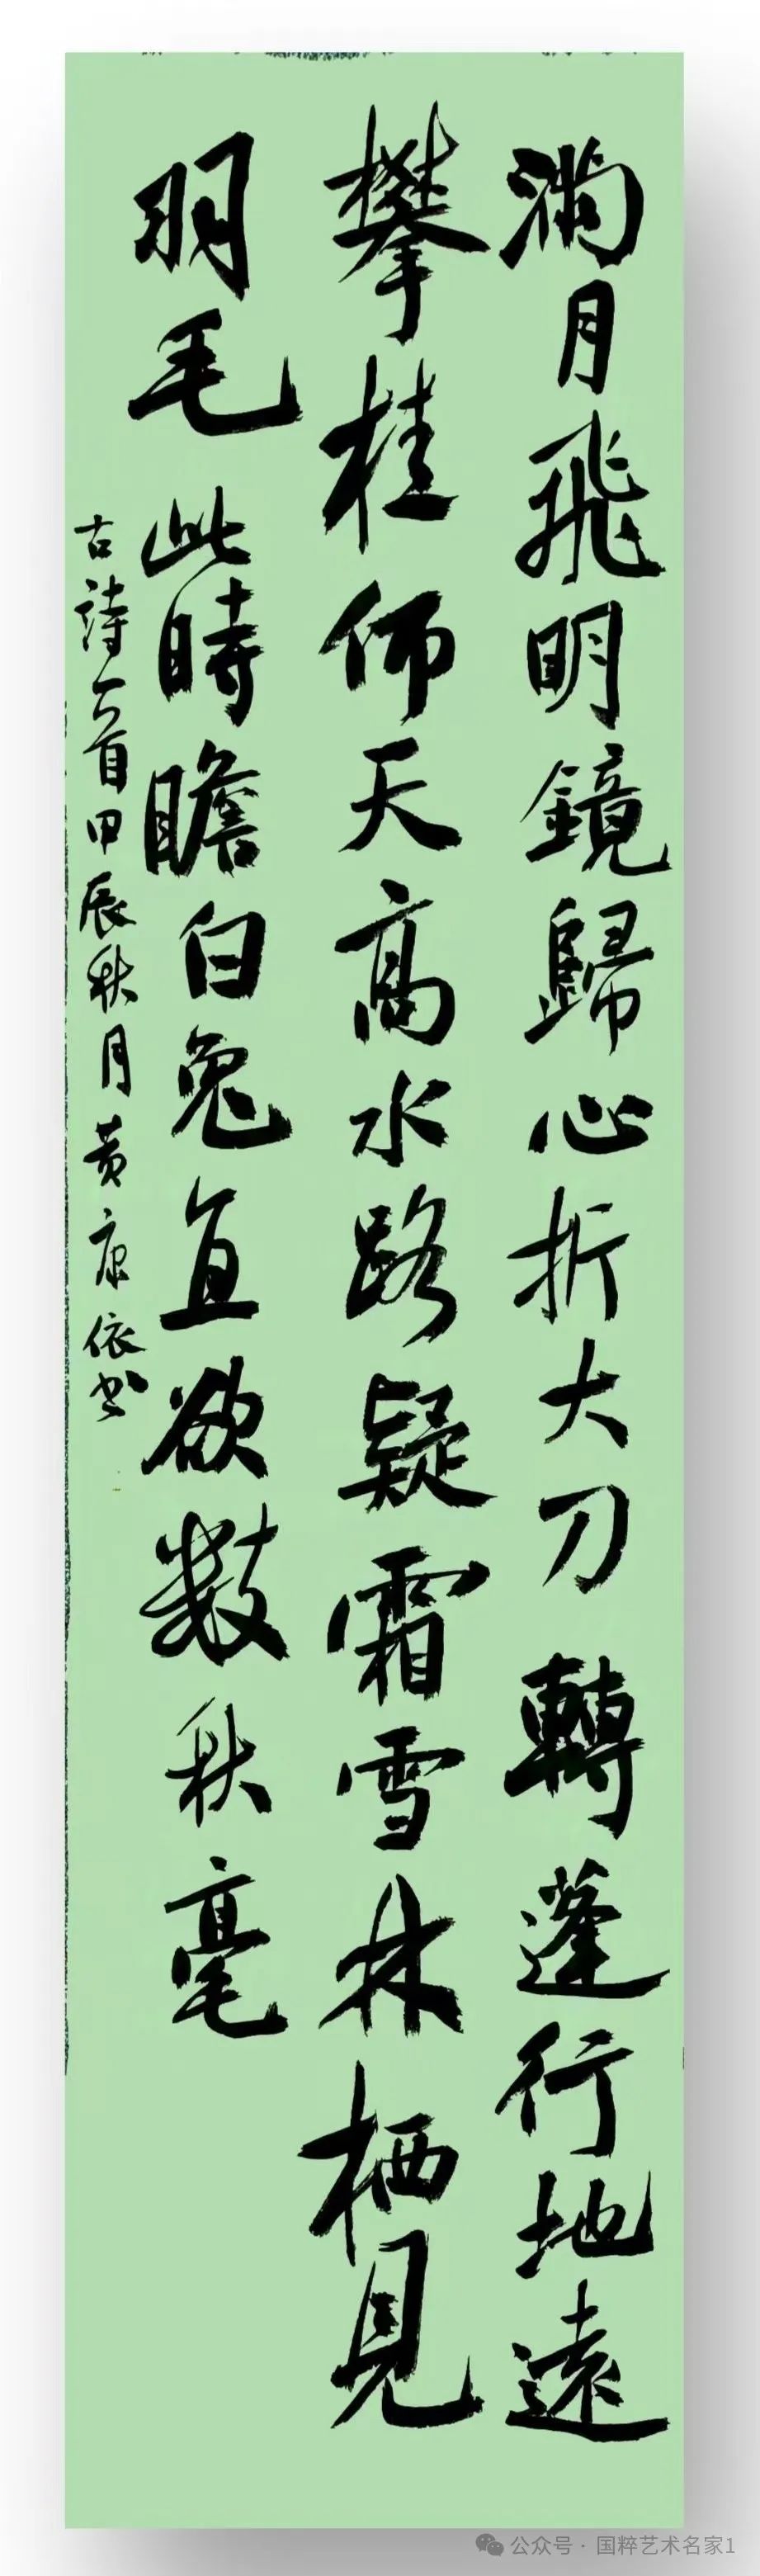 满月飛明鏡歸心折大刀轉蓬行地遠
攀桂仰天高水路疑霜雪林栖見
羽毛此時瞻白兔直欲数秋毫
古詩一首甲辰秋月黄康依书
公众号·国粹艺术名家1